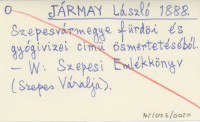 O JÁRMAY László 1888.
Szepesvármegye fürdői és
gyógyvizei című ösmertetéséből.
— W: Szepesi Emlékkönyv
(Szepes Váralja).